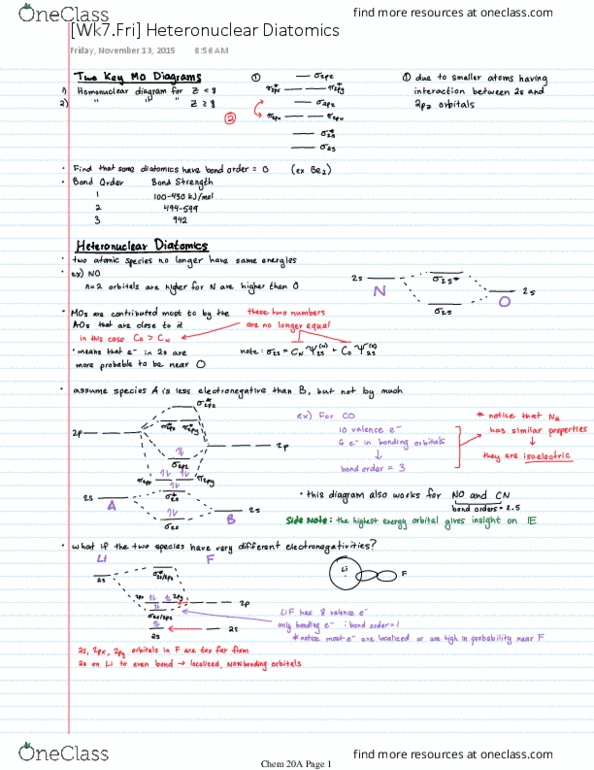 OneClass
find more resources at oneclass.com
[Wk7.Fri] Heteronuclear Diatomics
Friday, November 13, 2015 8:56 AM
Two Key MO Diagrams
1) Homonuclear diagram for Z < 8
2) " " " Z ≥ 8
①
σ*2pz
π*2px π*2py
σ2pz
②
π2px π2py
σ*2s
σ2s
① due to smaller atoms having
interaction between 2s and
2pz orbitals
• Find that some diatomics have bond order = 0 (ex Be2)
• Bond Order Bond Strength
1 100-430 kJ/mol
2 494-599
3 942
Heteronuclear Diatomics
• two atomic species no longer have same energies
• ex) NO
n=2 orbitals are higher for N are higher than O
2s
N
σ2s*
σ2s
2s
O
• MOs are contributed most to by the
AOs that are close to it
in this case CO > CN
• means that e- in 2s are
more probable to be near O
these two numbers
are no longer equal
note: σ2s = CN Ψ2s(N) + CO Ψ2s(O)
• assume species A is less electronegative than B, but not by much
σ*2pz
2p
π*2px π*2py
2p
σ2pz
π2px π2py
2s
A
σ*2s
2s
B
σ2s
ex) For CO
10 valence e-
6 e- in bonding orbitals
↓
bond order = 3
* notice that N2
has similar properties
↓
they are isoelectric
• this diagram also works for NO and CN
bond orders = 2.5
Side Note: the highest energy orbital gives insight on IE
• what if the two species have very different electronegativities?
Li F
2s
2px 2py
2p
2s
2s
Li
F
LiF has 8 valence e-
only bonding e- ∴ bond order = 1
* notice most e- are localized or are high in probability near F
2s, 2px, 2py orbitals in F are too far from
2s on Li to even bond → localized, NONbonding orbitals
OneClass
find more resources at oneclass.com
Chem 20A Page 1